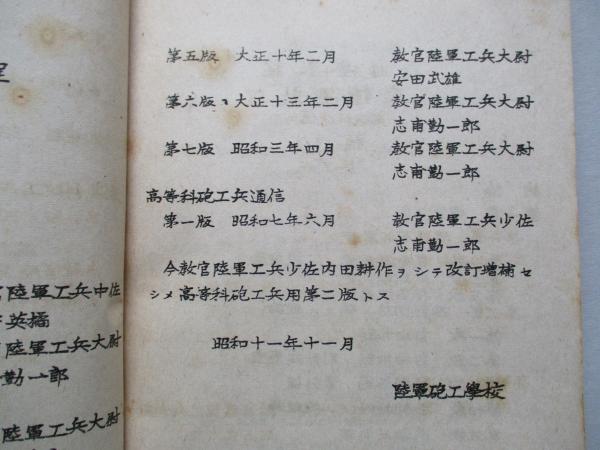 第五版 大正十年二月 教官陸軍工兵大尉
安田武雄
第六版、大正十三年二月 教官陸軍工兵大尉
志甫勤一郎
第七版 昭和三年四月 教官陸軍工兵大尉
志甫勤一郎
高等科砲工兵通信
第一版 昭和七年六月 教官陸軍工兵少佐
志甫勤一郎
今教官陸軍工兵少佐内田耕作ヲシテ改訂増補セ
シメ高等科砲工兵用第二版トス
昭和十一年十一月
陸軍砲工學校
程
官陸軍工兵中佐
英橘
陸軍工兵大尉
勤一郎
陸軍工兵大尉